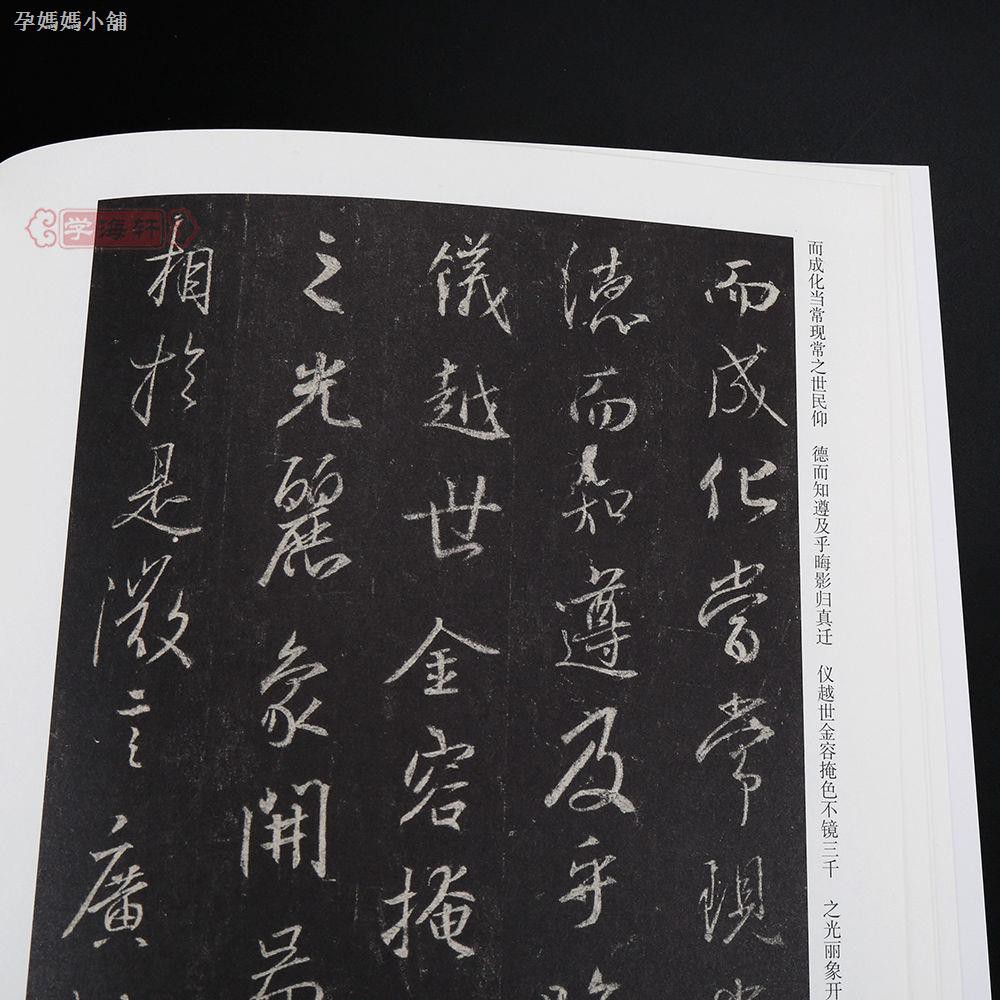 孕媽媽小舖
学海轩
而成化當常現
德而知遵及乎
儀越世金容掩
之光麗象開
相於是微言廣
而成化当常现常之世民仰　德而知遵及乎晦影归真迁　仪越世金容掩色不镜三千　之光丽象开